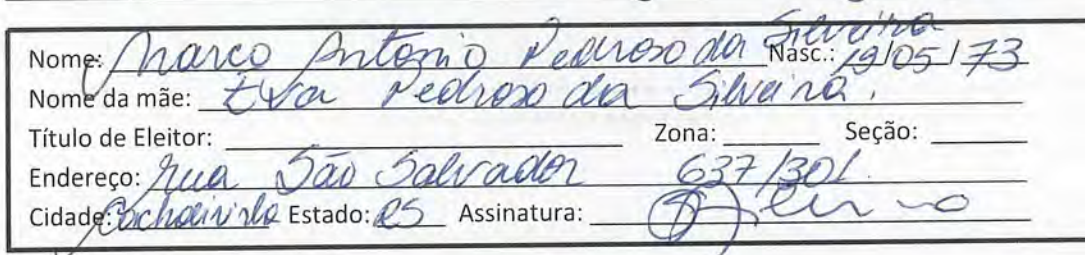 Nome: Marco Antonio Pedroso da Silveira Nasc.: 19/05/73
Nome da mãe: Eva Pedroso da Silveira.
Título de Eleitor: Zona: Seção:
Endereço: Rua São Salvador 637/301.
Cidade: Cachoeirinha Estado: RS Assinatura: